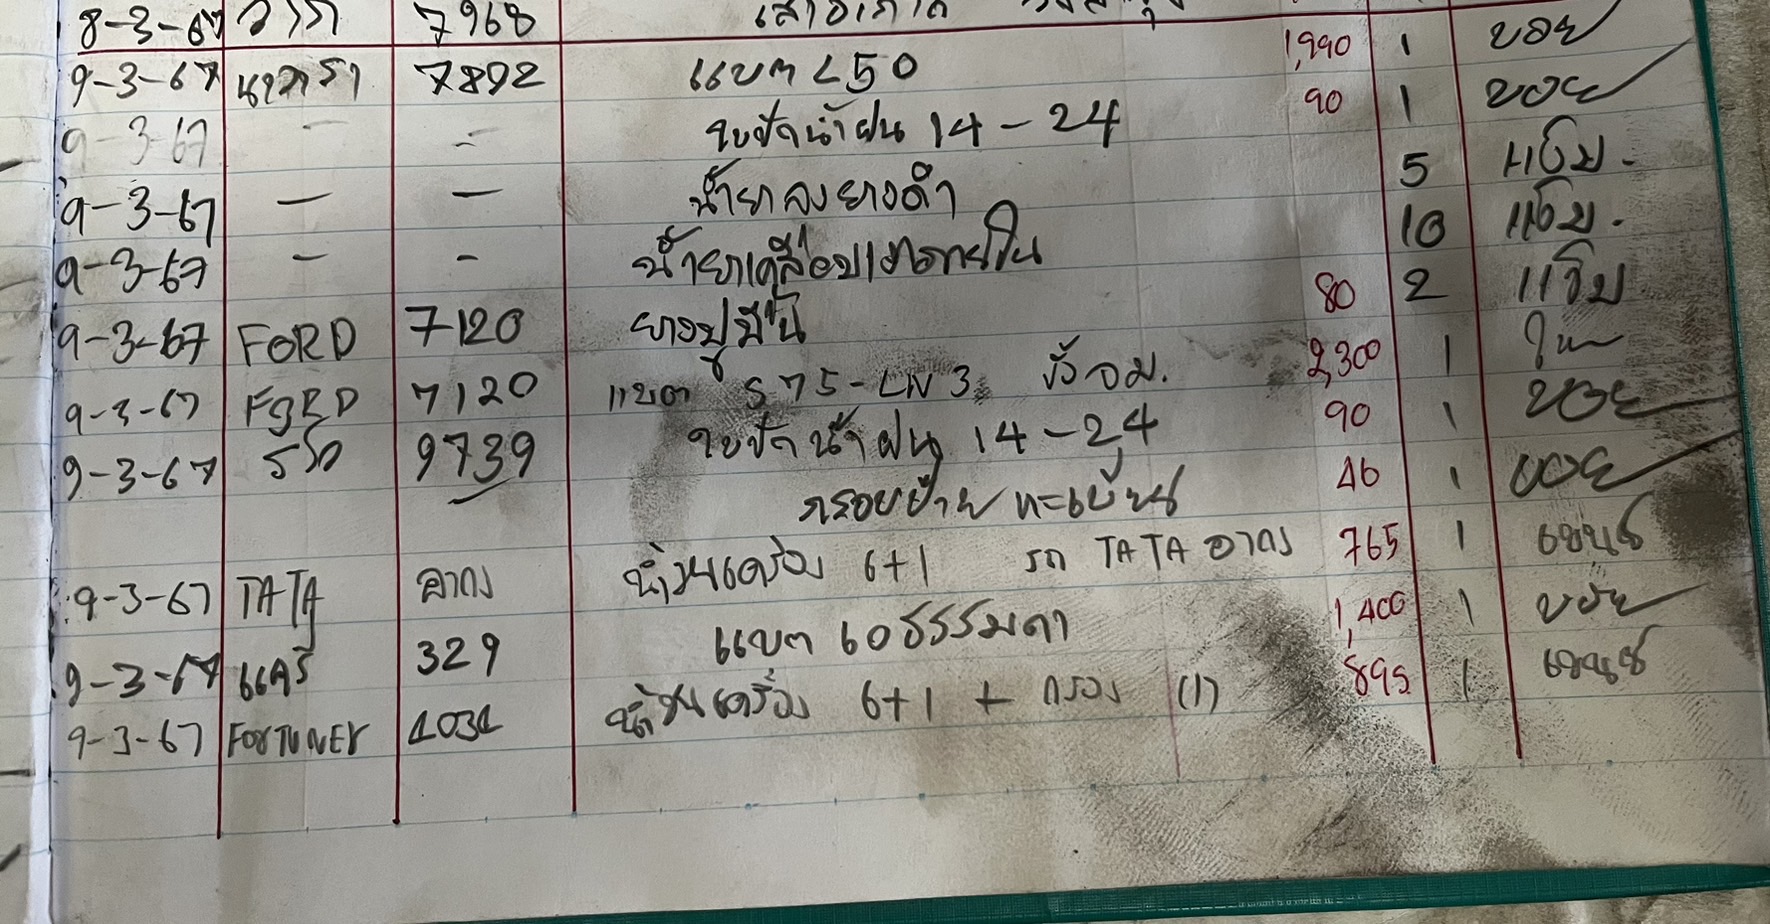 8-3-67 7968
9-3-67 นาวารา 7892 แบต L50 1,990 1 บอย
9-3-67 - - ใบปัดน้ำฝน 14-24 90 1 บอย
9-3-67 - - น้ำยาลงยางดำ 5 แอ๊ม.
9-3-67 - - น้ำยาเคลือบเงาภายใน 10 แอ๊ม.
9-3-67 FORD 7120 ยางปูมีขั้น 80 2
9-3-67 FORD 7120 แบต S75-LN3 ขั้วจม. 2,300 1
9-3-67 รีโว่ 9739 ใบปัดน้ำฝน 14-24 90 1 บอย
กรอบป้ายทะเบียน 46 1 บอย
9-3-67 TATA อาคง น้ำมันเครื่อง 6+1 รถ TATA อาคง 765 1
9-3-67 แครี่ 329 แบต 60 ธรรมดา 1,400 1 บอย
9-3-67 FORTUNER 1031 น้ำมันเครื่อง 6+1 + กรอง (1) 895 1